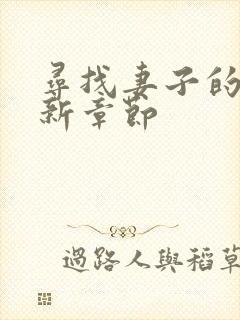 尋找妻子的
新章節
過路人與稻草